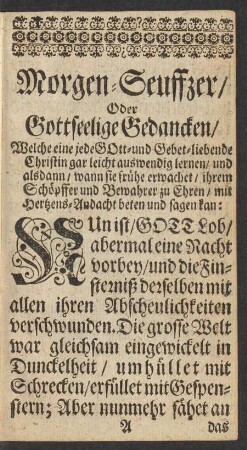 Morgen-Seuffzer/
Oder
Gottseelige Gedancken/
Welche eine jede GOtt-und Gebet-liebende
Christin gar leicht auswendig lernen/ und
alsdann/ wann sie frühe erwachet/ ihrem
Schöpffer und Bewahrer zu Ehren/ mit
Hertzens-Andacht beten und sagen kan:
NUn ist/ GOTT Lob/
abermal eine Nacht
vorbey/ und die Fin-
sterniß derselben mit
allen ihren Abscheulichkeiten
verschwunden. Die grosse Welt
war gleichsam eingewickelt in
Dunckelheit/ umhüllet mit
Schrecken/ erfüllet mit Gespen-
stern; Aber nunmehr fähet an
A das